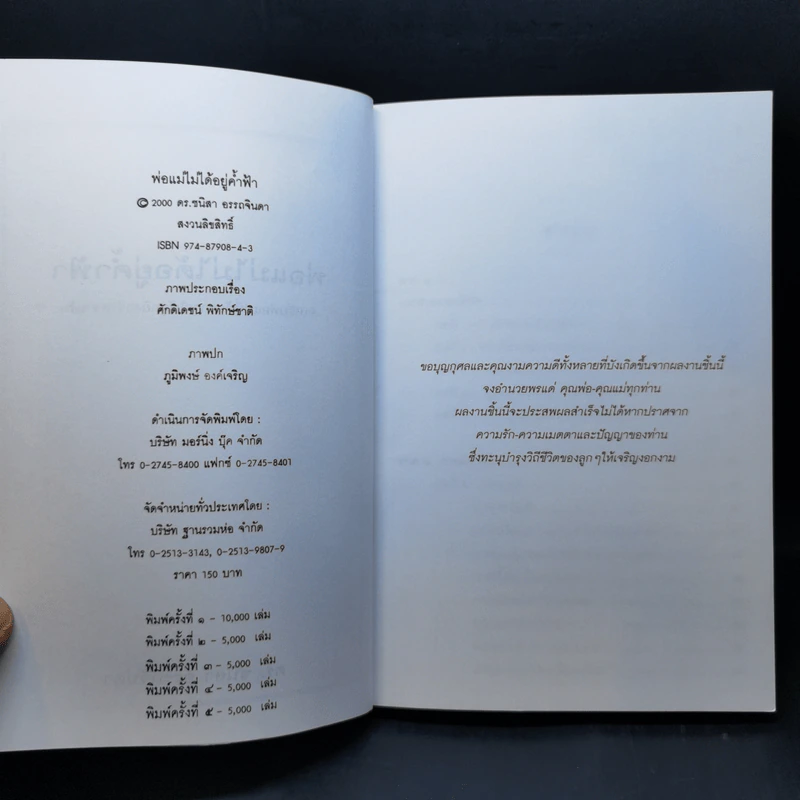 พ่อแม่ไม่ได้อยู่ค้ำฟ้า
© 2000 ดร.ชนิสา อรรถจินดา
สงวนลิขสิทธิ์
ISBN 974-87908-4-3
ภาพประกอบเรื่อง
ศักดิเดชน์ พิทักษ์ชาติ
ภาพปก
ภูมิพงษ์ องค์เจริญ
ดำเนินการจัดพิมพ์โดย :
บริษัท มอร์นิ่ง บุ๊ค จำกัด
โทร 0-2745-8400 แฟกซ์ 0-2745-8401
จัดจำหน่ายทั่วประเทศโดย :
บริษัท ฐานรวมห่อ จำกัด
โทร 0-2513-3143, 0-2513-9807-9
ราคา 150 บาท
พิมพ์ครั้งที่ ๑ - 10,000 เล่ม
พิมพ์ครั้งที่ ๒ - 5,000 เล่ม
พิมพ์ครั้งที่ ๓ - 5,000 เล่ม
พิมพ์ครั้งที่ ๔ - 5,000 เล่ม
พิมพ์ครั้งที่ ๕ - 5,000 เล่ม
ขอบุญกุศลและคุณงามความดีทั้งหลายที่บังเกิดขึ้นจากผลงานชิ้นนี้
จงอำนวยพรแด่ คุณพ่อ-คุณแม่ทุกท่าน
ผลงานชิ้นนี้จะประสพผลสำเร็จไม่ได้หากปราศจาก
ความรัก-ความเมตตาและปัญญาของท่าน
ซึ่งทะนุบำรุงวิถีชีวิตของลูกๆให้เจริญงอกงาม